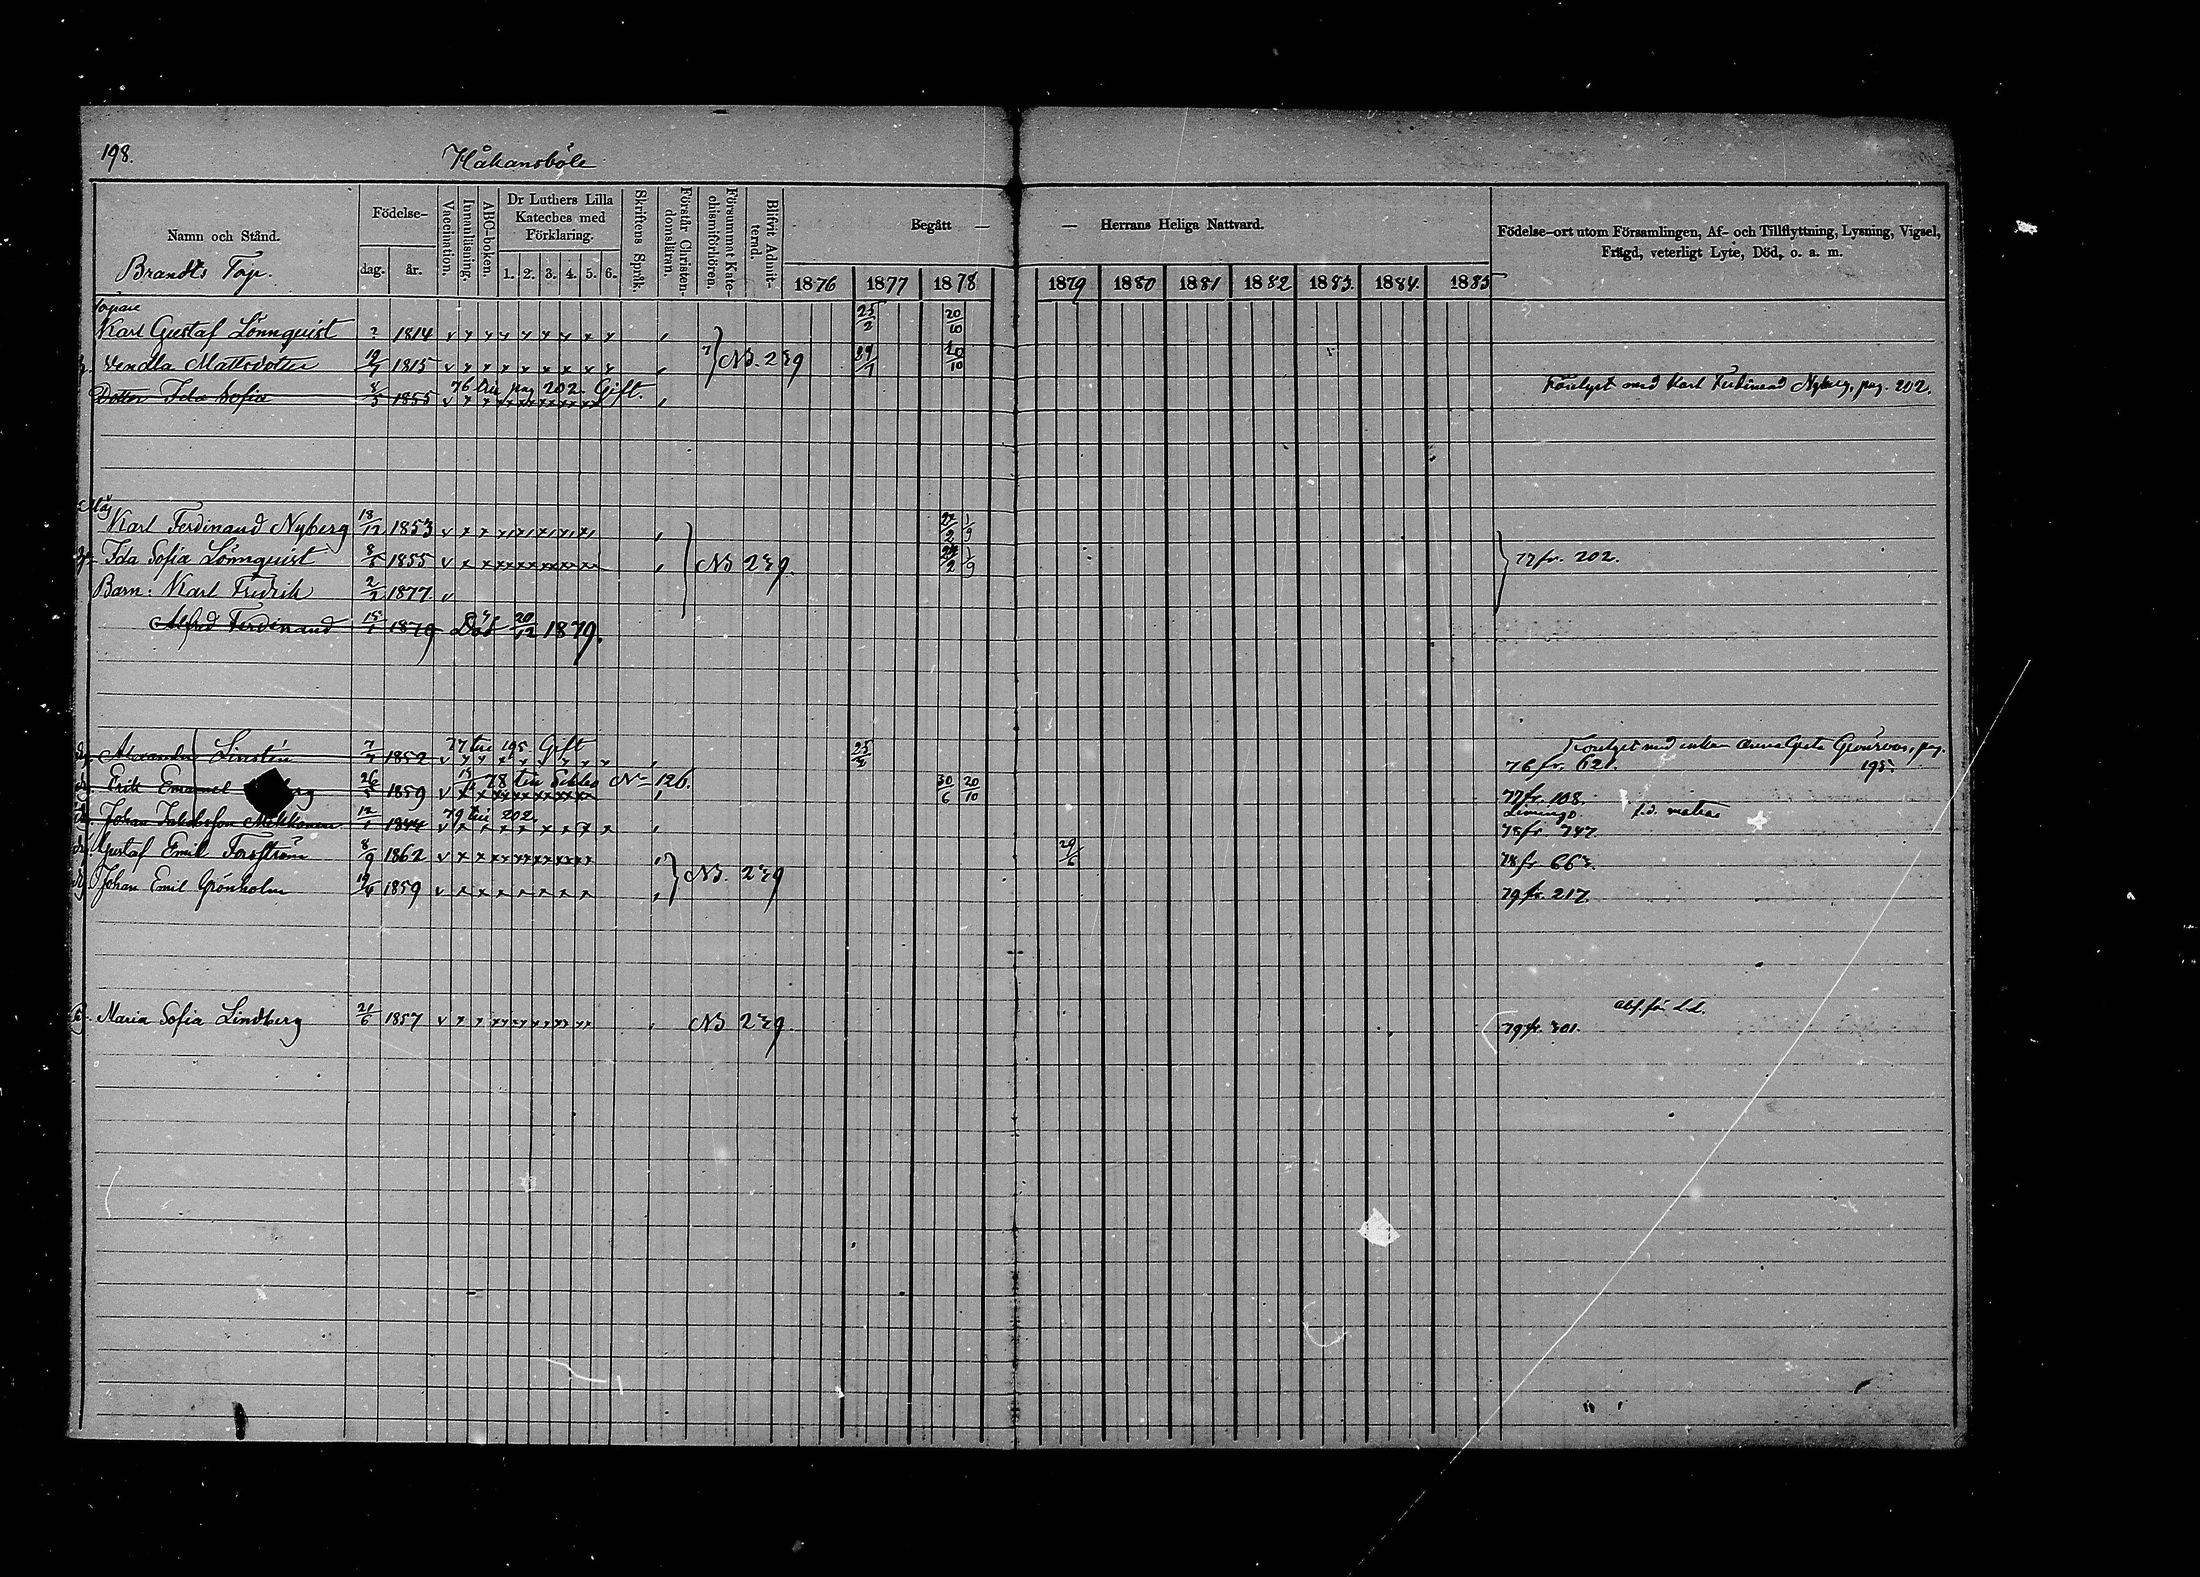 198.
Håkansböle
Namn och Stånd.
Födelse-
dag. år.
Vaccination.
Innanläsning.
ABC-boken.
Dr Luthers Lilla Kateches med Förklaring.
1. 2. 3. 4. 5. 6.
Skriftens Språk.
Förstår Christendomsläran.
Försummat Katechismiförhören.
Blifvit Admitterad.
Begått — — Herrans Heliga Nattvard.
1876 1877 1878 1879 1880 1881 1882 1883 1884 1885
Födelse-ort utom Församlingen, Af- och Tillflyttning, Lysning, Vigsel,
Frägd, veterligt Lyte, Död, o. a. m.
Brandts Torp.
Torpare
Karl Gustaf Lönnquist ? 1814 25/2 20/10
Vendla Mattsdotter 1815 NB. 279 20/10
Dotter Ida Sofia 8/5 1855 76 till pag 202. Gift. Förlyst med Karl Ferdinand Nyberg, pag. 202.
Måg
Karl Ferdinand Nyberg 18/12 1853 1/9
Ida Sofia Lönnquist 8/5 1855 NB 279. 1/9 77 fr. 202.
Barn: Karl Fredrik 1877
Alfred Ferdinand 15/1 1879 Död 20/12 1879.
Alexander Linstén 1852 77 till 195. Gift Förlyst med Anna Greta Grönroos, pag. 195.
76 fr. 621.
Erik Emanuel 26/5 1859 78 till Sibbo No 126. 30/6 20/10 77 fr. 108.
Johan Jakobsson Mikkonen 12/1 1844 79 till 202. f.d. matros
78 fr. 747.
Gustaf Emil Forsström 8/9 1862 29/6 78 fr. 663.
Johan Emil Grönholm 1859 NB. 279 79 fr. 217.
Maria Sofia Lindberg 21/6 1857 NB 279. 79 fr. 301.